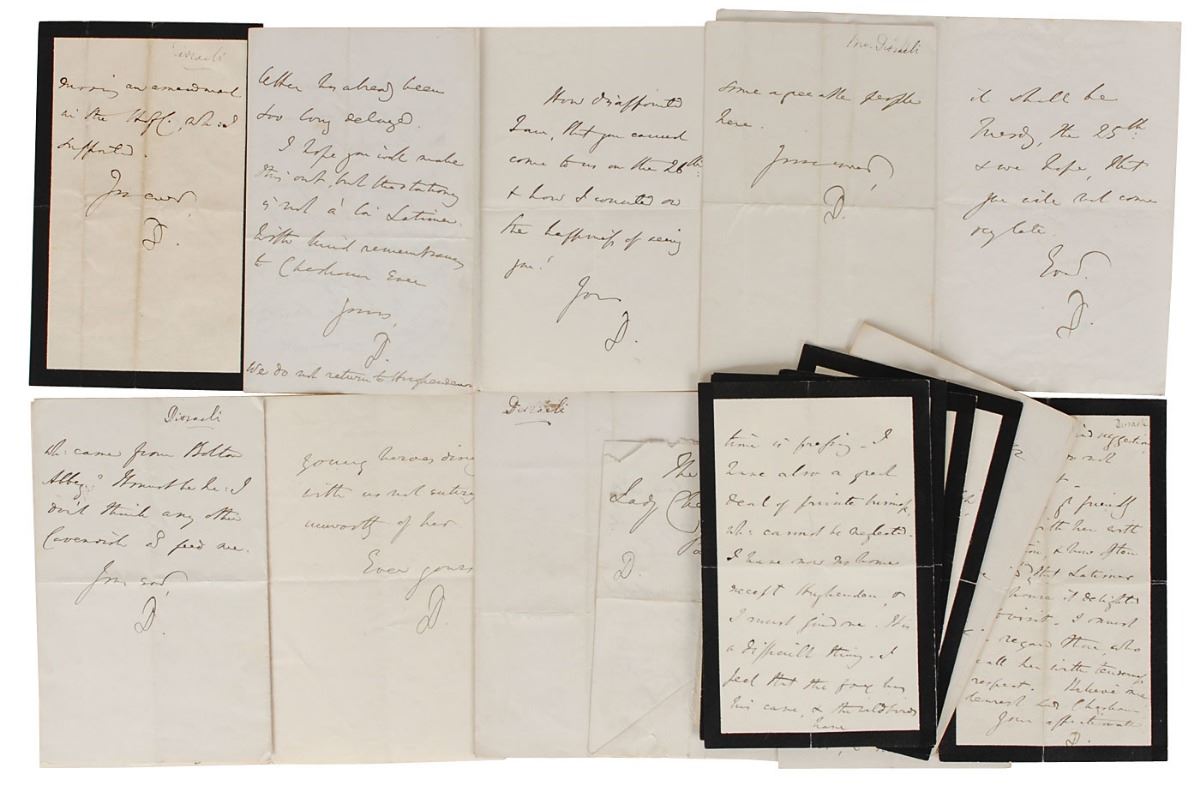 Disraeli
moving an amendment
in the H of C, wh: I
supported.
Yrs ever,
D.
letter has already been
too long delayed.
I hope you will make
this out, but the stationery
is not à la Latimer.
With kind remembrances
to Chesham Ever
Yours,
D.
We do not return to Hughenden
How disappointed
I am, that you cannot
come to us on the 26th:
& how I counted on
the happiness of seeing
you!
Yrs
D.
Mr. Disraeli
some agreeable people
here.
Yours ever,
D.
it shall be
Tuesday, the 25th
& we hope, that
you will not come
very late.
Yrs
D.
Disraeli
wh: came from Bolton
Abbey? It must be he: I
don't think any other
Cavendish d feed me.
Yrs ever,
D.
young heroes
with us not
unworthy of her
Ever yours
D.
Disraeli
The
Lady Che
D.
time is pressing. I
have also a great
deal of private business,
wh: cannot be neglected.
I have now no home
except Hughenden, &
I must find one. This is
a difficult thing. I
feel that the fox has
his cave, & the wild birds
have
Disraeli
suggestion
not
friendly
with her with
& how often
that Latimer
house it delighted
visit. I must
regard those who
call her with tenderness
respect. Believe me
dearest Lady Chesham
Your affectionate
D.